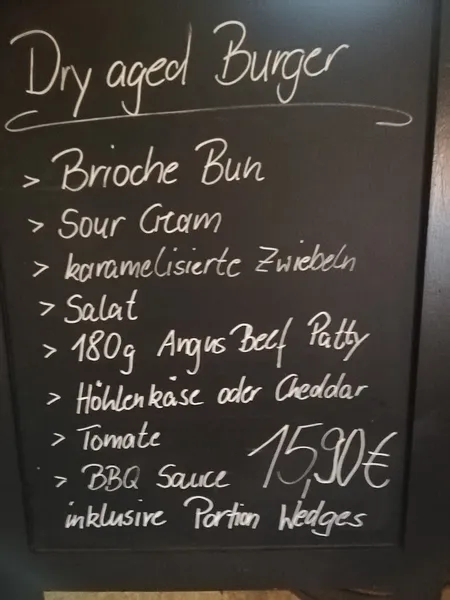 Dry aged Burger
> Brioche Bun
> Sour Cream
> karamelisierte Zwiebeln
> Salat
> 180g Angus Beef Patty
> Höhlenkäse oder Cheddar
> Tomate
> BBQ Sauce 15,90€
inklusive Portion Wedges